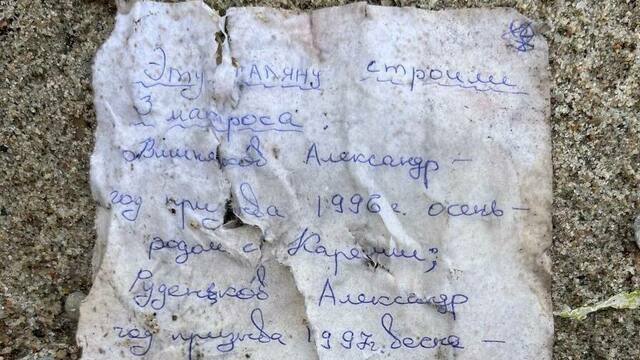 Эту поляну строили
3 матроса
Вишняков Александр —
год призыва 1996 г. осень —
родом с Карелии;
Руденцков Александр
год призыва 1997 г. весна —